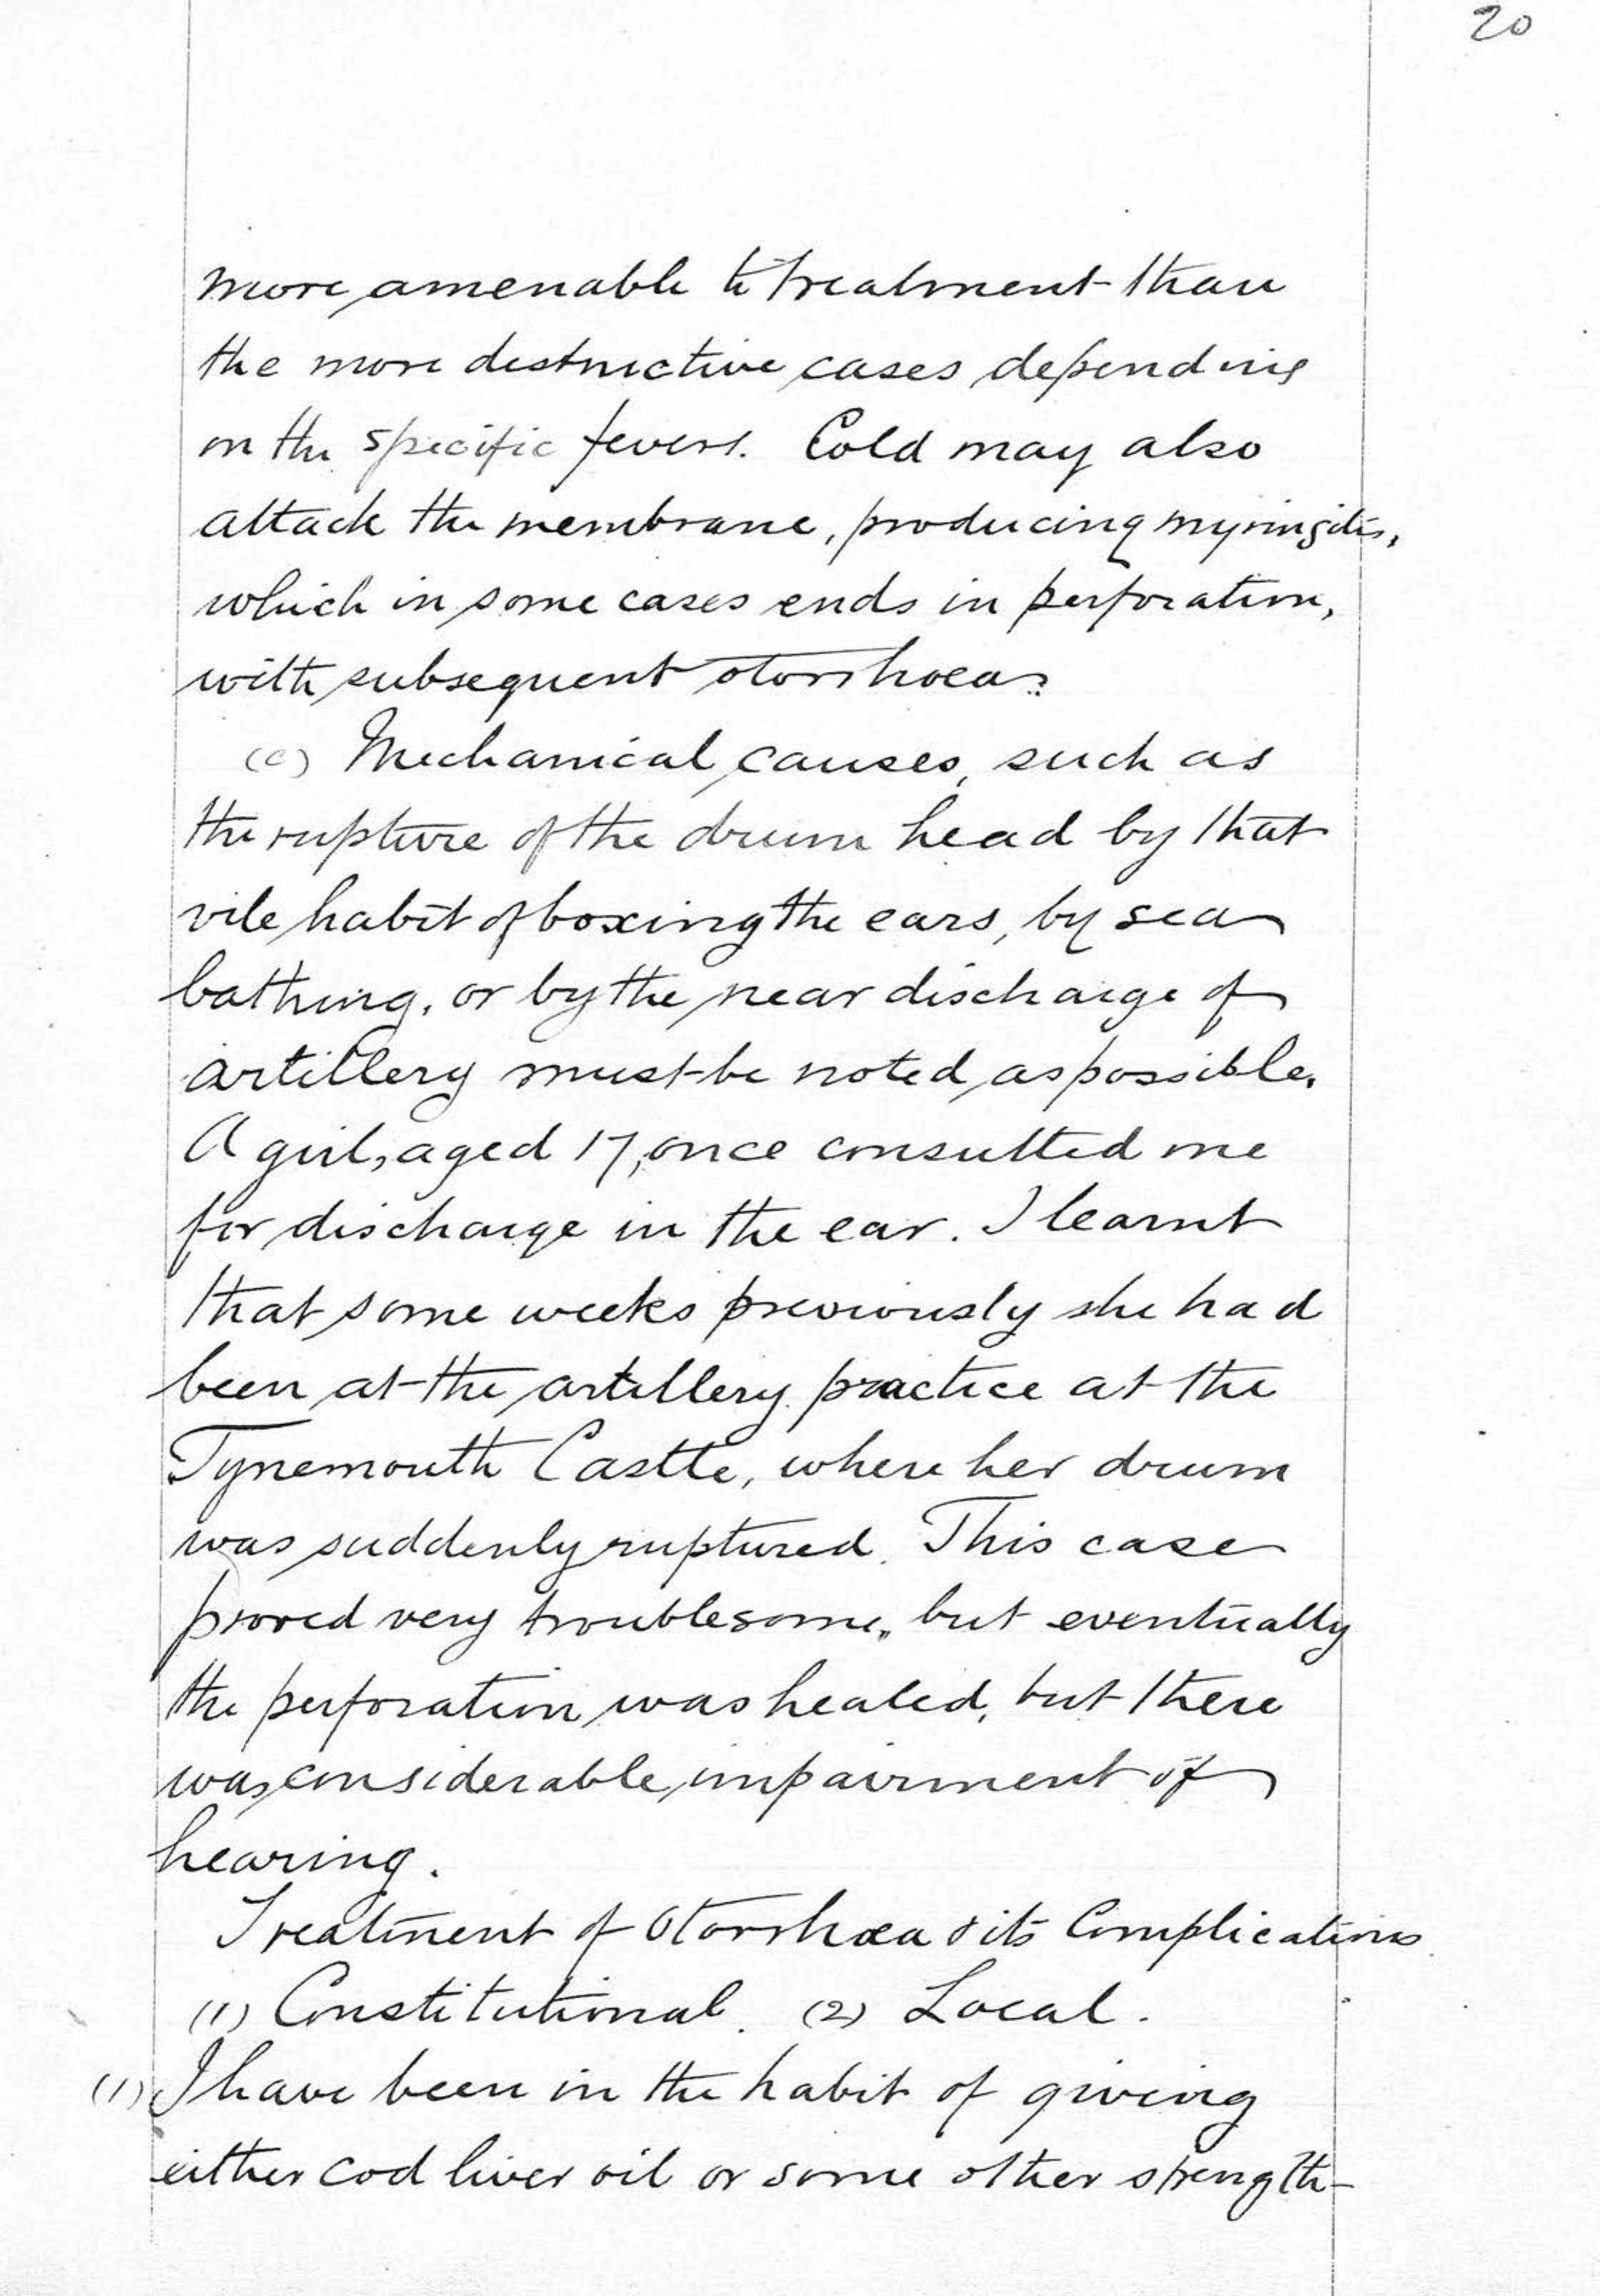 20
more amenable to treatment than
the more destructive cases depending
on the specific fevers. Cold may also
attack the membrane, producing myringitis,
which in some cases ends in perforation,
with subsequent otorrhoea.
(c) Mechanical causes, such as
the rupture of the drum head by that
vile habit of boxing the ears, by sea
bathing, or by the near discharge of
artillery must be noted as possible.
A girl, aged 17, once consulted me
for discharge in the ear. I learnt
that some weeks previously she had
been at the artillery practice at the
Tynemouth Castle, where her drum
was suddenly ruptured. This case
proved very troublesome, but eventually
the perforation was healed, but there
was considerable impairment of
hearing.
Treatment of Otorrhoea & its Complications
(1) Constitutional. (2) Local.
(1) I have been in the habit of giving
either cod liver oil or some other strength-